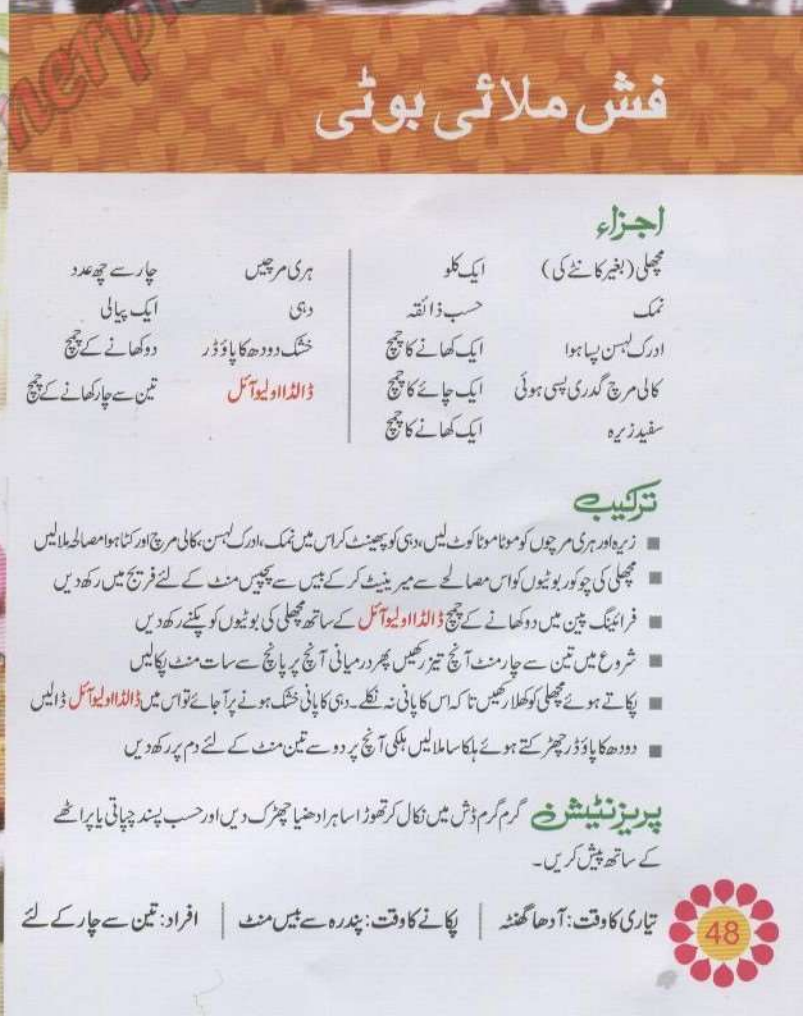 فش ملائی بوٹی
اجزاء
مچھلی (بغیر کانٹے کی) ایک کلو
نمک حسب ذائقہ
ادرک لہسن پسا ہوا ایک کھانے کا چمچ
کالی مرچ گدری پسی ہوئی ایک چائے کا چمچ
سفید زیرہ ایک کھانے کا چمچ
ہری مرچیں چار سے چھ عدد
دہی ایک پیالی
خشک دودھ کا پاؤڈر دو کھانے کے چمچ
ڈالڈا اولیو آئل تین سے چار کھانے کے چمچ
ترکیب
■ زیرہ اور ہری مرچوں کو موٹا موٹا کوٹ لیں، دہی کو پھینٹ کر اس میں نمک، ادرک لہسن، کالی مرچ اور کٹا ہوا مصالحہ ملا لیں
■ مچھلی کی چوکور بوٹیوں کو اس مصالحے سے میرینیٹ کر کے بیس سے پچیس منٹ کے لئے فریج میں رکھ دیں
■ فرائینگ پین میں دو کھانے کے چمچ ڈالڈا اولیو آئل کے ساتھ مچھلی کی بوٹیوں کو پکنے رکھ دیں
■ شروع میں تین سے چار منٹ آنچ تیز رکھیں پھر درمیانی آنچ پر پانچ سے سات منٹ پکالیں
■ پکاتے ہوئے مچھلی کو کھلا رکھیں تاکہ اس کا پانی نہ نکلے۔ دہی کا پانی خشک ہونے پر آ جائے تو اس میں ڈالڈا اولیو آئل ڈالیں
■ دودھ کا پاؤڈر چھڑکتے ہوئے ہلکا سا ملا لیں ہلکی آنچ پر دو سے تین منٹ کے لئے دم پر رکھ دیں
پریزنٹیشن گرم گرم ڈش میں نکال کر تھوڑا سا ہرا دھنیا چھڑک دیں اور حسب پسند چپاتی یا پراٹھے
کے ساتھ پیش کریں۔
تیاری کا وقت: آدھا گھنٹہ | پکانے کا وقت: پندرہ سے بیس منٹ | افراد: تین سے چار کے لئے
48